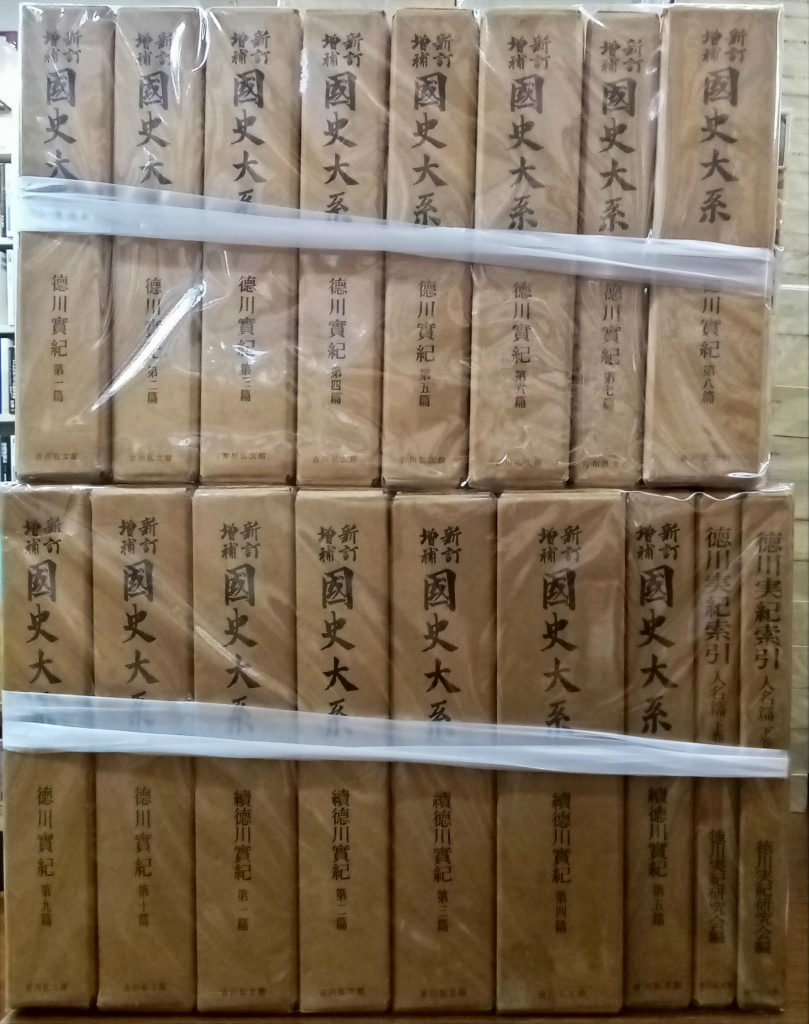 新訂
增補
國史大
德川實紀 第一篇
吉川弘文館
新訂
增補
國史大
德川實紀 第二篇
吉川弘文館
新訂
增補
國史大系
德川實紀 第三篇
吉川弘文館
新訂
增補
國史大系
德川實紀 第四篇
吉川弘文館
新訂
增補
國史大系
德川實紀 第五篇
吉川弘文館
新訂
增補
國史大系
德川實紀 第六篇
吉川弘文館
新訂
增補
國史大系
德川實紀 第七篇
吉川弘文館
新訂
增補
國史大系
德川實紀 第八篇
吉川弘文館
新訂
增補
國史大系
德川實紀 第九篇
吉川弘文館
新訂
增補
國史大系
德川實紀 第十篇
吉川弘文館
新訂
增補
國史大系
續德川實紀 第一篇
吉川弘文館
新訂
增補
國史大系
續德川實紀 第二篇
吉川弘文館
新訂
增補
國史大系
續德川實紀 第三篇
吉川弘文館
新訂
增補
國史大系
續德川實紀 第四篇
吉川弘文館
新訂
增補
國史大系
續德川實紀 第五篇
吉川弘文館
徳川実紀索引 人名篇 上巻
徳川実紀研究会編
吉川弘文館
徳川実紀索引 人名篇 下巻
徳川実紀研究会編